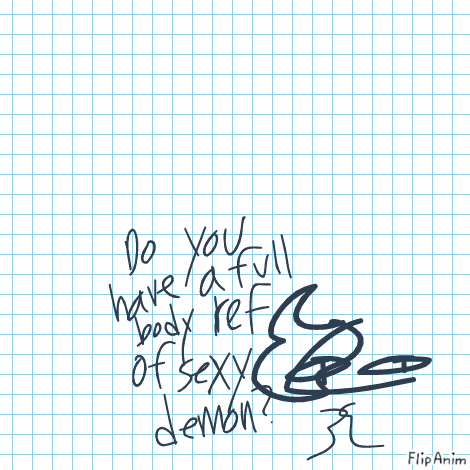 Do you
have a full
body ref
of sexy
demon?
FlipAnim